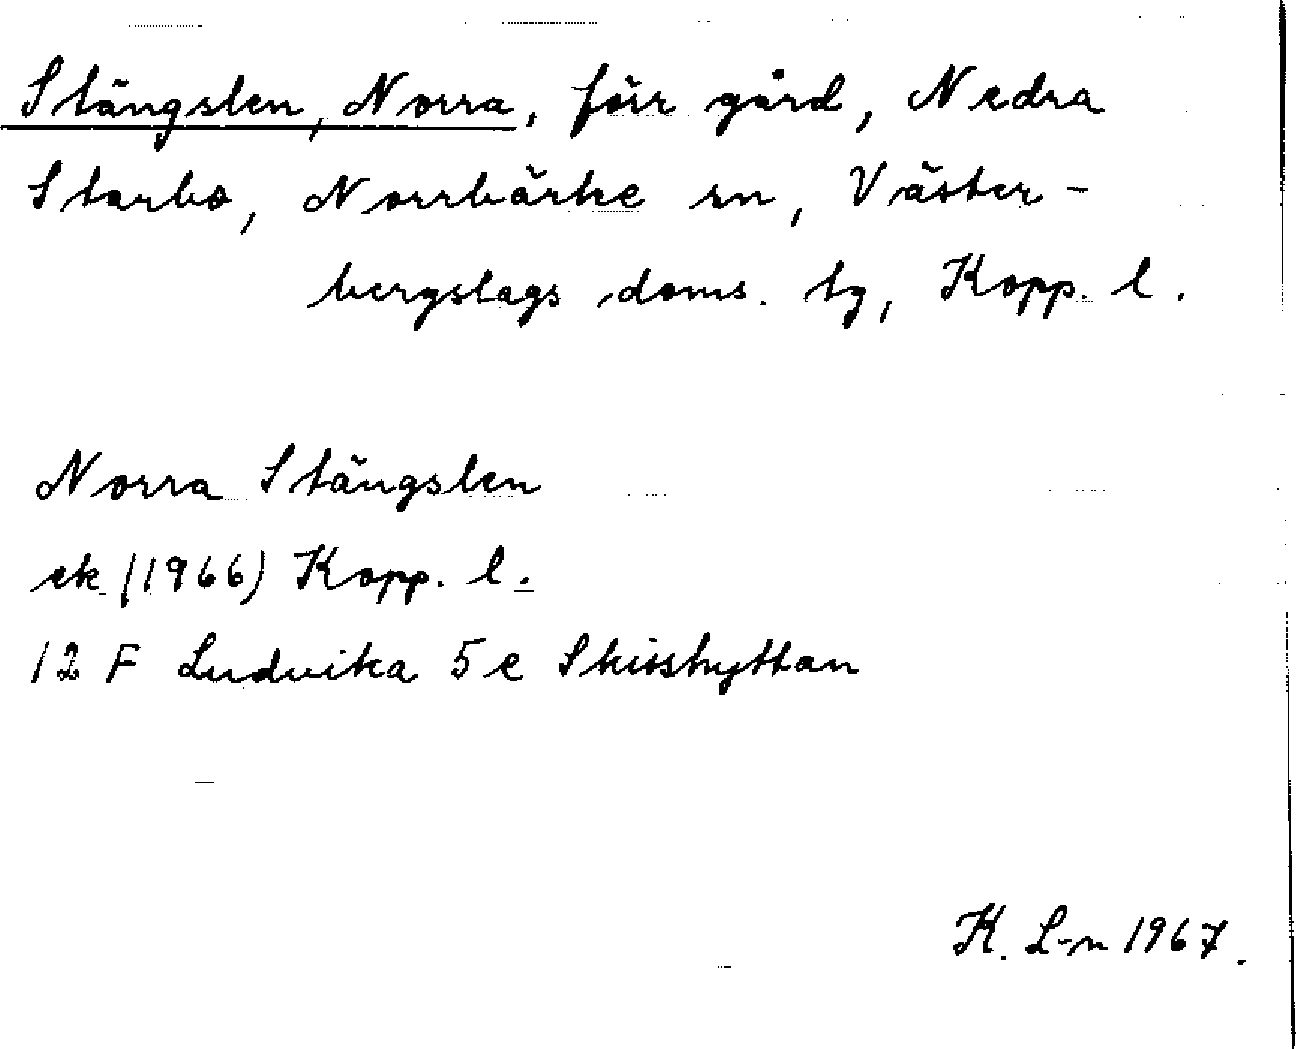 Stängslen, Norra, förr gård, Nedra
Starbo, Norrbärke sn, Väster-
bergslags doms. tg, Kopp. l.
Norra Stängslen
ek (1966) Kopp. l.
12 F Ludvika 5 e Skisshyttan
K. L-n 1967.